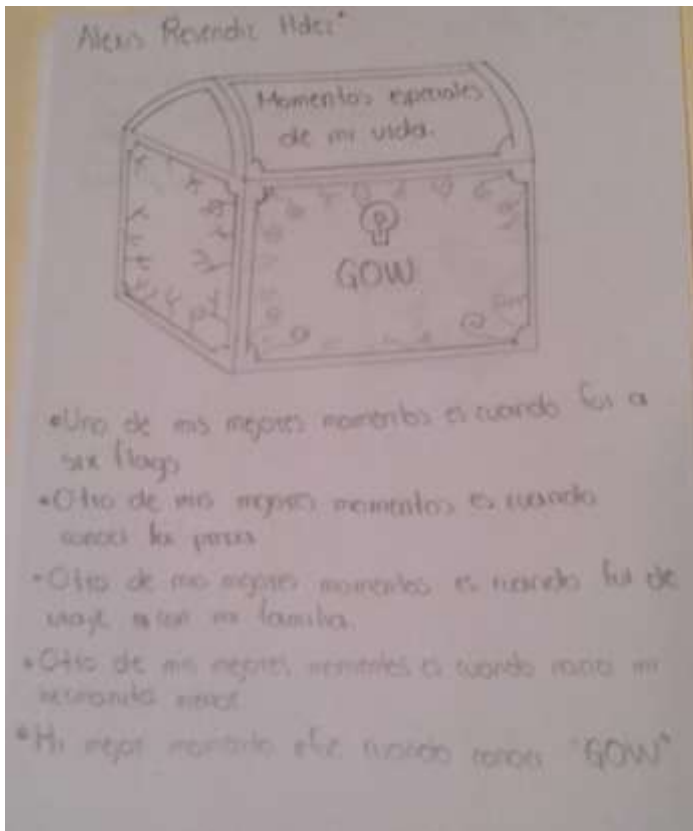 Alexis Resendiz Hdez
Momentos especiales
de mi vida.
GOW
•Uno de mis mejores momentos es cuando fui a
six flags
•Otro de mis mejores momentos es cuando
conoci
•Otro de mis mejores momentos es cuando fui de
viaje con mi familia.
•Otro de mis mejores momentos es cuando nacio mi
hermanita menor
•Mi mejor momento cuando conoci "GOW"